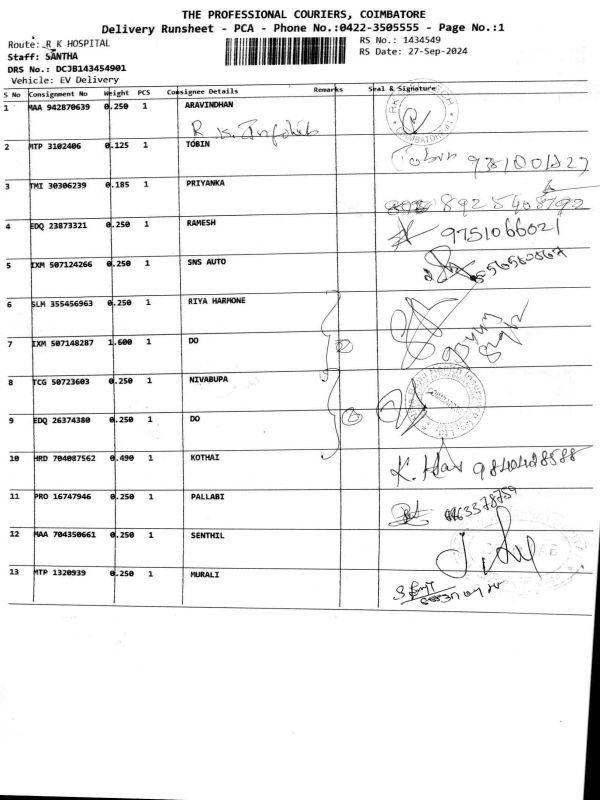 THE PROFESSIONAL COURIERS, COIMBATORE
Delivery Runsheet - PCA - Phone No.:0422-3505555 - Page No.:1
Route: R K HOSPITAL
RS No.: 1434549
Staff: SANTHA
RS Date: 27-Sep-2024
DRS No.: DCJB143454901
Vehicle: EV Delivery
S No Consignment No Weight PCS Consignee Details Remarks Seal & Signature
1 MAA 942870639 0.250 1 ARAVINDHAN
R K
2 MTP 3102406 0.125 1 TOBIN Tobin
3 TMI 30306239 0.185 1 PRIYANKA 8925408792
4 EDQ 23873321 0.250 1 RAMESH 9751066021
5 IXM 507124266 0.250 1 SNS AUTO
6 SLM 355456963 0.250 1 RIYA HARMONE
7 IXM 507148287 1.600 1 DO 2
8 TCG 50723603 0.250 1 NIVABUPA
9 EDQ 26374380 0.250 1 DO 2
10 HRD 704087562 0.490 1 KOTHAI 9840428588
11 PRO 16747946 0.250 1 PALLABI
12 MAA 704350661 0.250 1 SENTHIL
13 MTP 1320939 0.250 1 MURALI